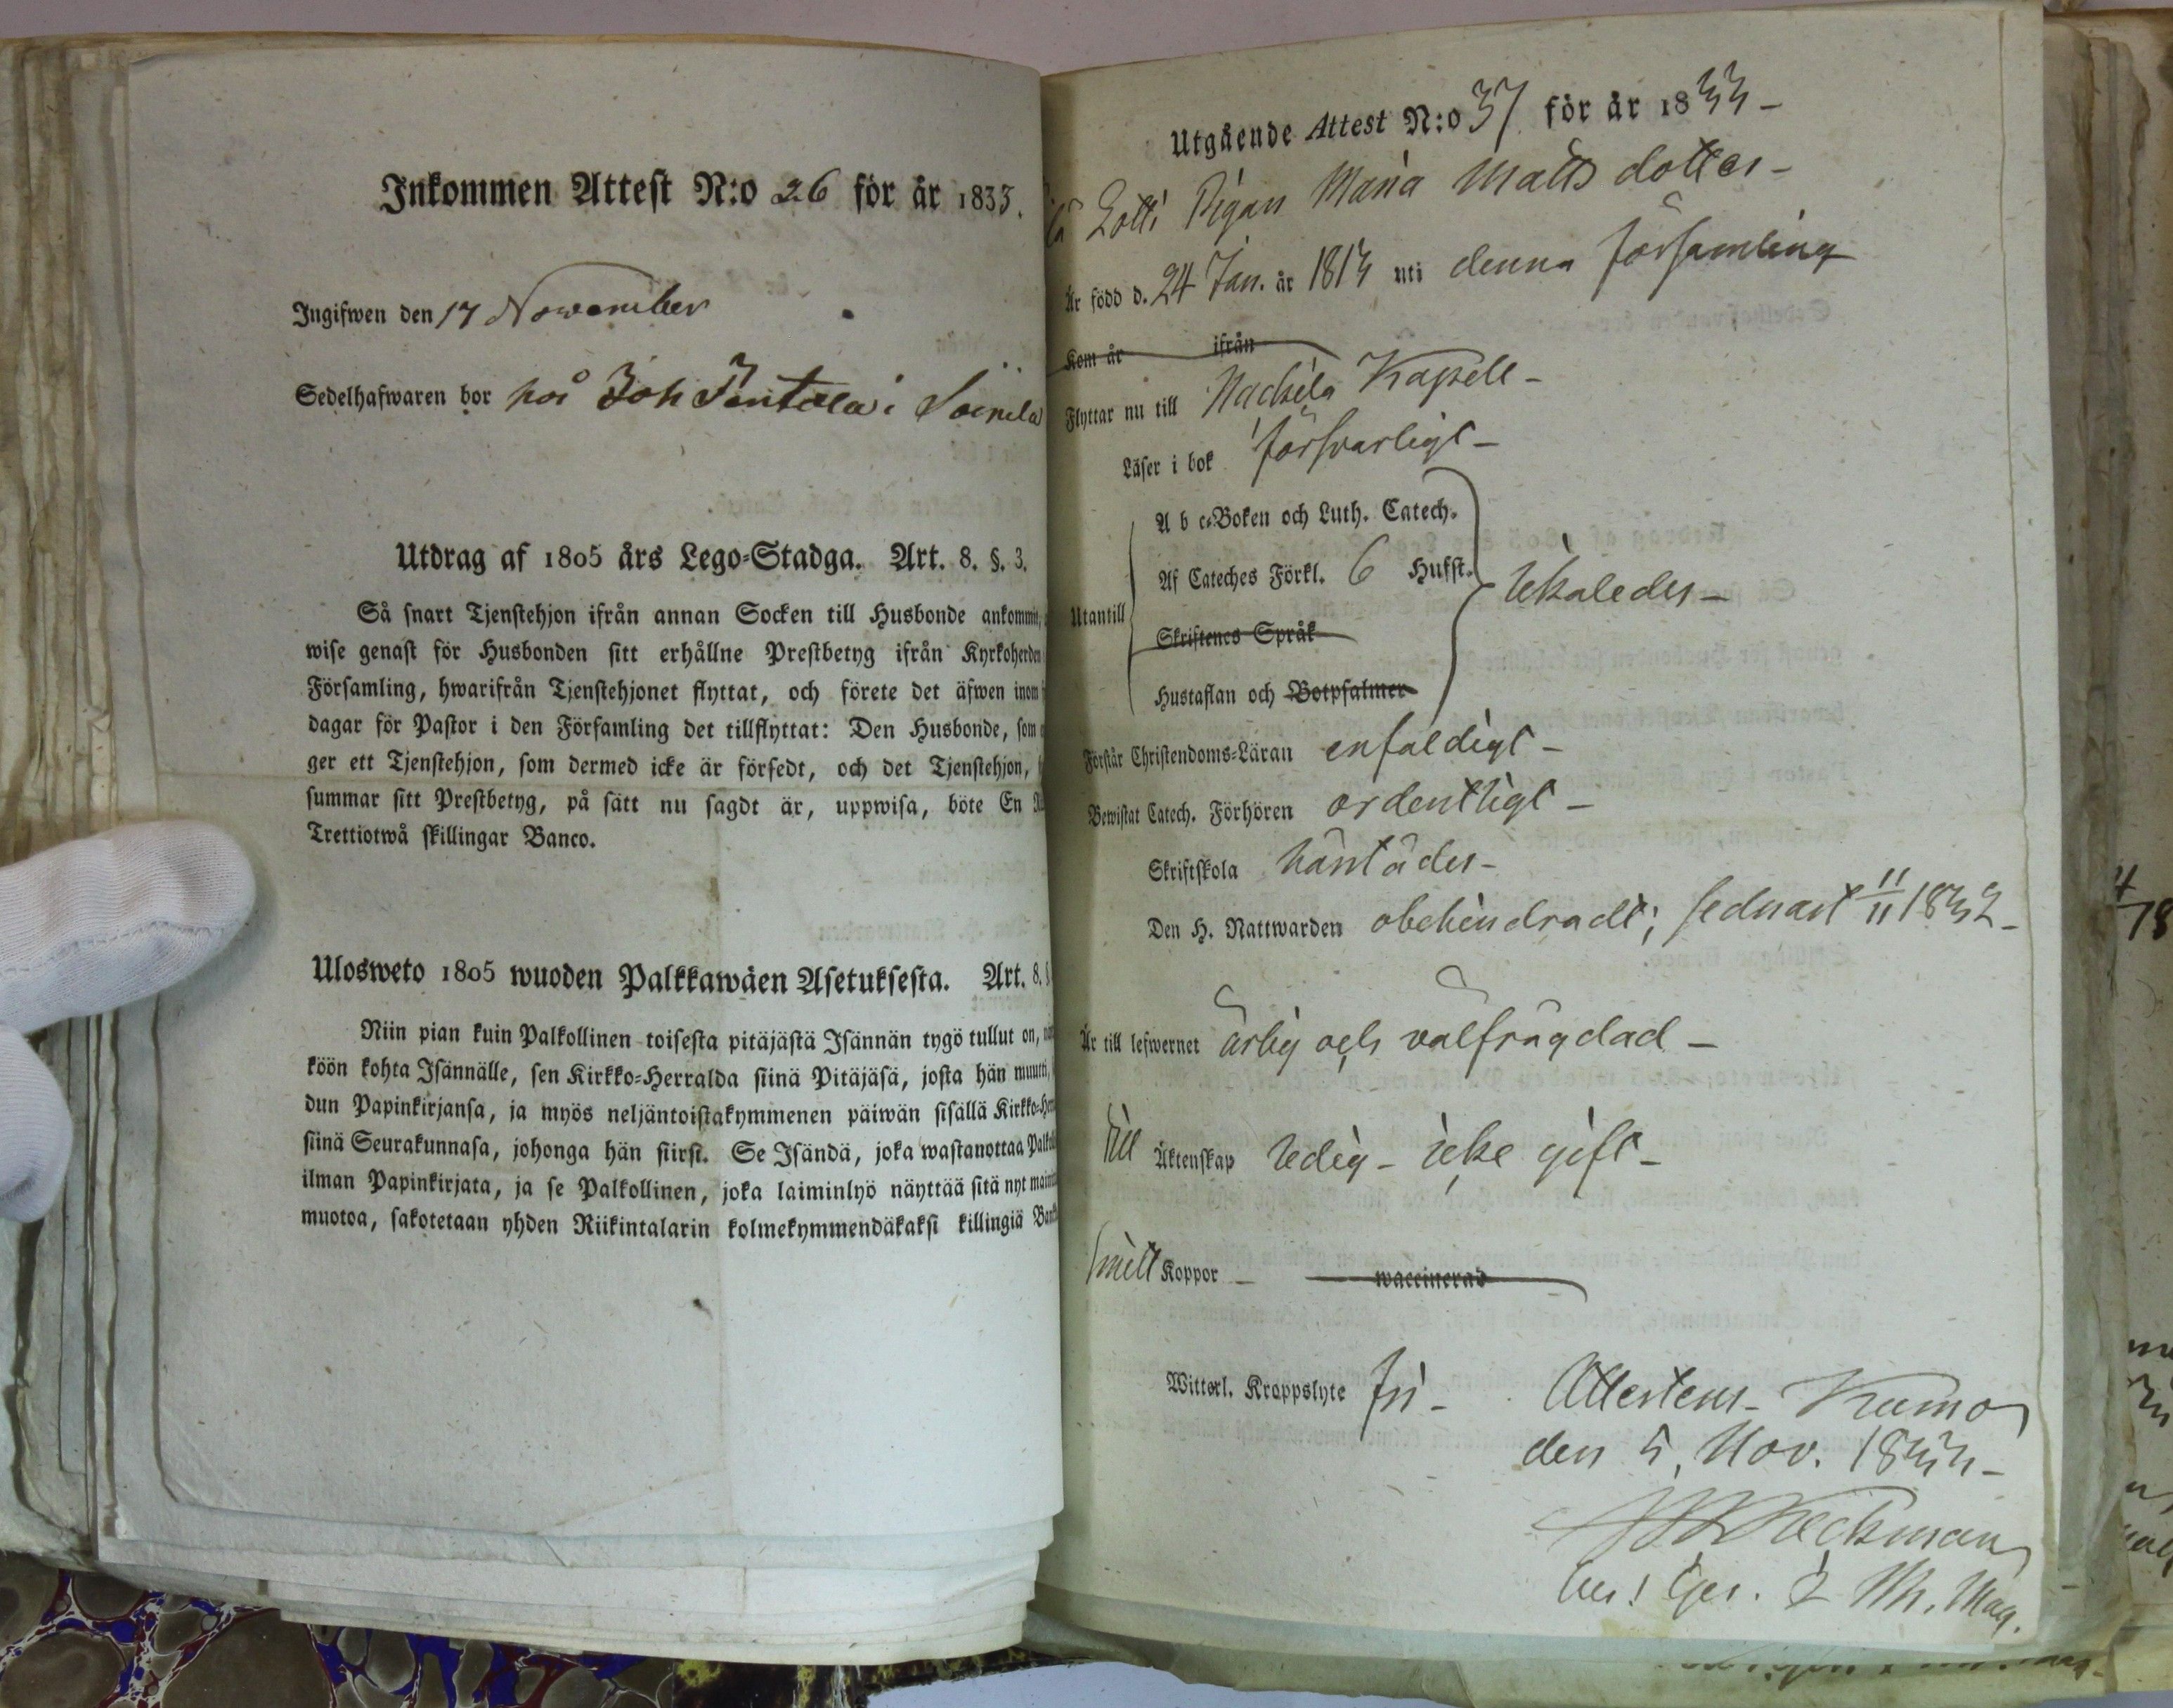 Inkommen Attest N:o 26 för år 1833.
Ingifwen den 17 November
Sedelhafwaren bor hos Joh Pentala i Soinila
Utdrag af 1805 års Lego-Stadga. Art. 8. §. 3.
Så snart Tjenstehjon ifrån annan Socken till Husbonde ankommit,
wise genast för Husbonden sitt erhållne Prestbetyg ifrån Kyrkoherden
Församling, hwarifrån Tjenstehjonet flyttat, och förete det äfwen inom
dagar för Pastor i den Församling det tillflyttat: Den Husbonde, som
ger ett Tjenstehjon, som dermed icke är försedt, och det Tjenstehjon,
summar sitt Prestbetyg, på sätt nu sagdt är, uppwisa, böte En
Trettiotwå skillingar Banco.
Ulosweto 1805 wuoden Palkkawäen Asetuksesta. Art. 8. §
Niin pian kuin Palkollinen toisesta pitäjästä Isännän tygö tullut on,
köön kohta Isännälle, sen Kirkko-Herralda siinä Pitäjäsä, josta hän muutti,
dun Papinkirjansa, ja myös neljäntoistakymmenen päiwän sisällä Kirkko-Her
siinä Seurakunnasa, johonga hän siirsi. Se Isändä, joka wastanottaa Palkoll
ilman Papinkirjata, ja se Palkollinen, joka laiminlyö näyttää sitä nyt main
muotoa, sakotetaan yhden Riikintalarin kolmekymmendäkaksi killingiä Ban
Utgående Attest N:o 37 för år 1833 -
Lotti Pigan Maria Matts dotter -
Är född d. 24 Jan. år 1813 uti denna församling
Kom år ifrån
Flyttar nu till Kapell -
Läser i bok försvarligt -
A b c-Boken och Luth. Catech.
Af Cateches Förkl. 6 Hufst. likaledes -
Utantill
Skriftenes Språk
Hustaflan och Botpsalmer
Förstår Christendoms-Läran enfaldigt -
Bewistat Catech. Förhören ordentligt -
Skriftskola
Den H. Nattwarden obehindradt; sednast 11/11 1832 -
Är till lefwernet ärlig och välfrägdad -
Till Äktenskap ledig - icke gift -
Haft Koppor - waccinerad
Witterl. Kroppslyte fri - Attesteras - Kumo
den 5 Nov. 1833 -